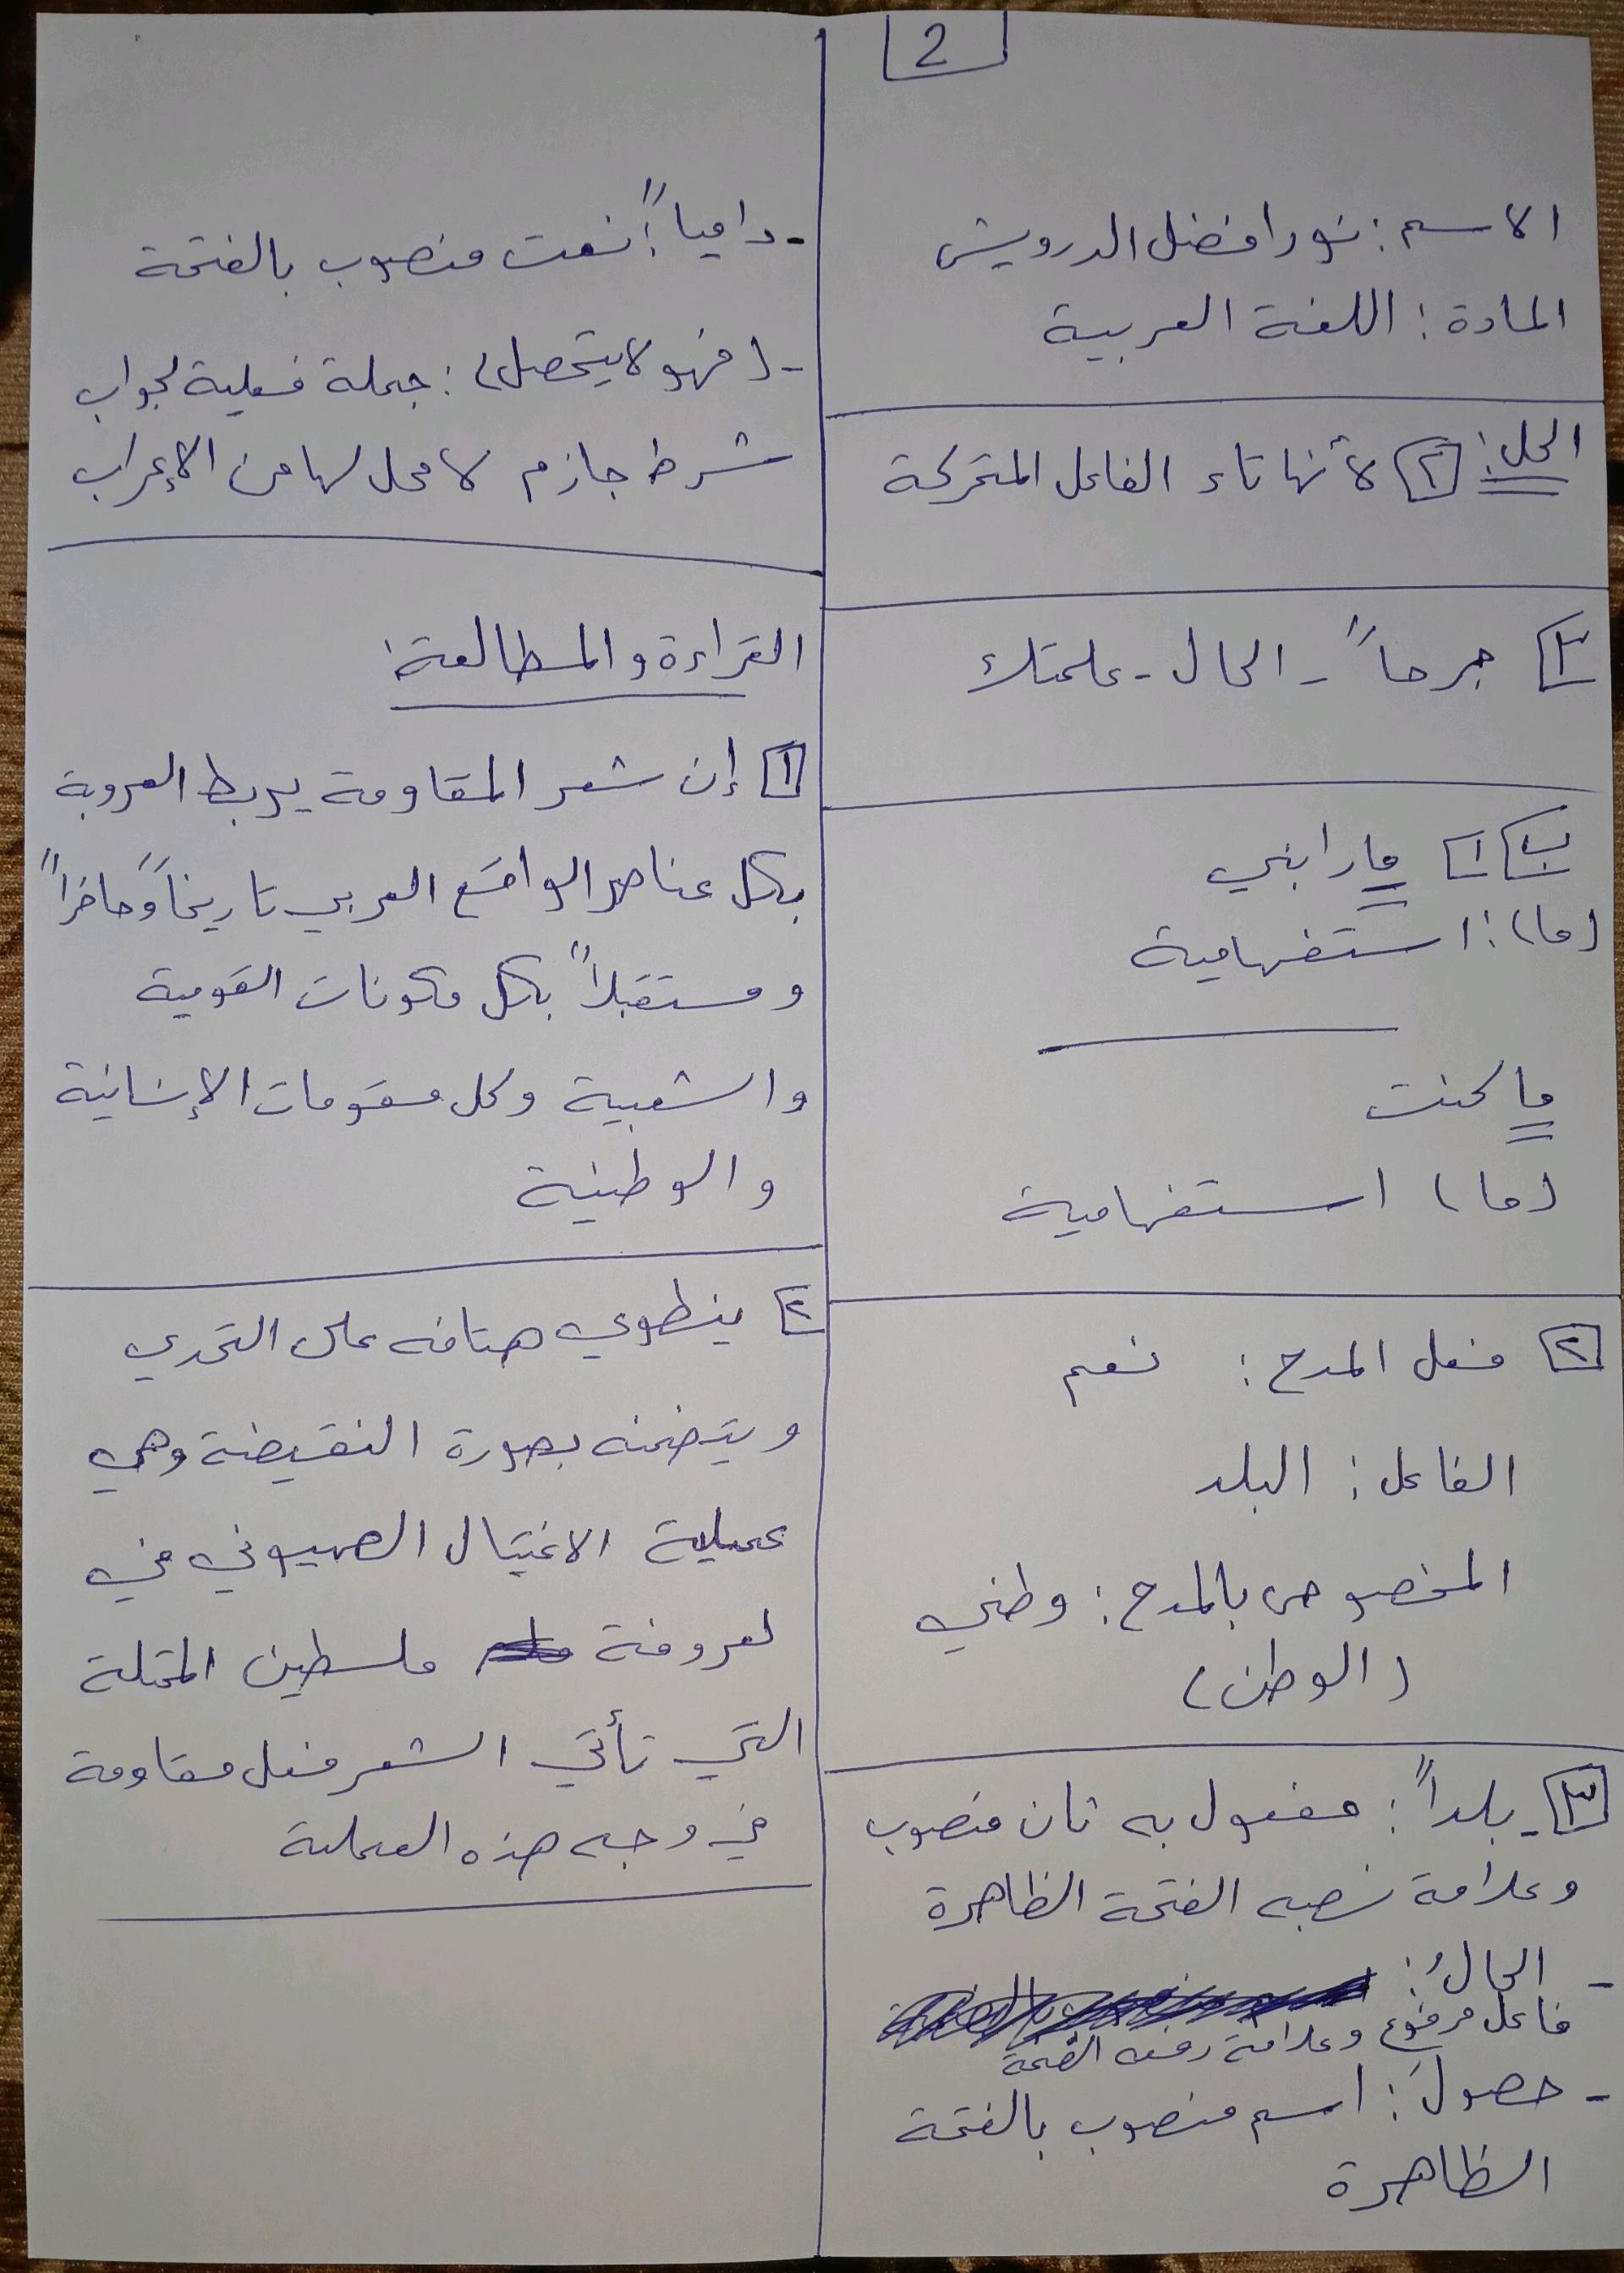 2
الاسم: نور افضل الدرويش
المادة: اللغة العربية
الحل: ٢ لأنها تاء الفاعل المتحركة
٣ جرحاً - الحال - علمتك
ب ١ ما رابني
(ما): استفهامية
ما كنت
(ما) استفهامية
٢ فعل المدح: نعم
الفاعل: البلد
المخصوص بالمدح: وطني
(الوطن)
٣ - بلداً: مفعول به ثان منصوب
وعلامة نصبه الفتحة الظاهرة
- الحالُ:
فاعل مرفوع وعلامة رفعه الضمة
- حصولَ: اسم منصوب بالفتحة
الظاهرة
- دامياً: نعت منصوب بالفتحة
- (فهو لا يتحصل): جملة فعلية لجواب
شرط جازم لا محل لها من الإعراب
القراءة والمطالعة:
١ إن شعر المقاومة يربط العروبة
بكل عناصر الواقع العربي تاريخاً وحاضراً
ومستقبلاً بكل مكونات القومية
والشعبية وكل مقومات الإنسانية
والوطنية
٢ ينطوي هتافه على التحدي
ويتضمنه بصورة النقيضة وهي
عملية الاغتيال الصهيوني في
لعروفة فلسطين المحتلة
التي تأتي الشعر فعل مقاومة
في وجه هذه العملية